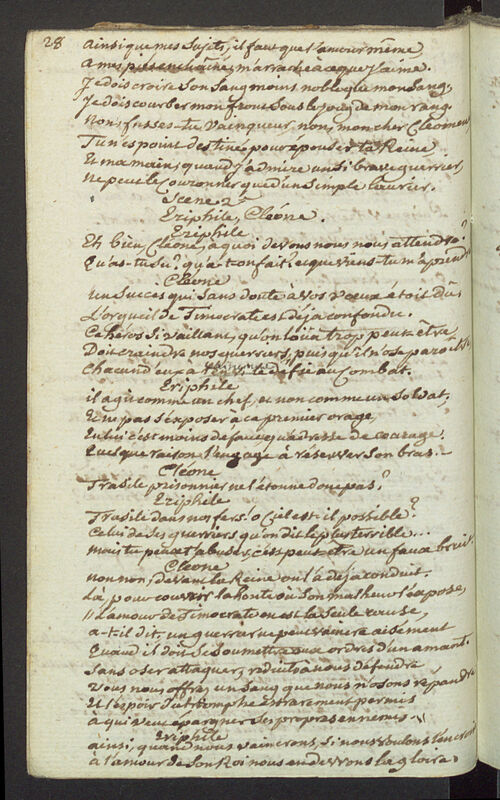 28
ainsi que mes Sujets, il faut que l'amour même
a mes pieds enchaîné, m'arrache à ce que j'aime.
Je dois croire Son Sang moins noble que mon Sang,
Je dois courber mon front Sous le joug de mon rang.
Non, fusses-tu vainqueur, non, mon cher Cleomene
Tu n'es point destiné pour épouser ta Reine
Et ma main, quand j'admire un si brave guerrier,
ne peut le Couronner que d'un simple laurier.
Scene 2e
Eriphile, Cléone.
Eriphile
Eh bien, Cléone, à quoi devons nous nous attendre?
Qu'as-tu Su? qu'a-t-on fait? et que viens-tu m'apprendre
Cléone
un Succes qui Sans doute à vos vœux étoit dû:
L'orgueil de Timocrate est déja confondu.
Ce héros Si vaillant, qu'on loüa trop peut-être,
Doit craindre nos guerriers, puisqu'il n'ose paroître
Chacun d'eux a le défie au Combat.
Eriphile
il agit comme un chef, et non comme un Soldat,
Et ne pas s'exposer à ce premier orage,
En lui c'est moins defaut qu'adresse de courage.
Quelque raison l'engage à réserver Son bras.
Cléone
Trasile prisonnier ne t'étonne donc pas?
Eriphile
Trasile dans nos fers! o Ciel est-il possible?
Celui de Ses guerriers qu'on dit le plus terrible...
mais tu peux t'abuser, c'est peut-être un faux bruit.
Cleone
non non, devant la Reine on l'a déja conduit.
Là pour couvrir la honte où Son malheur l'expose,
"L'amour de Timocrate en est la Seule cause,
a-t-il dit, un guerrier ne peut vaincre aisément
Quand il doit Se Soumettre aux ordres d'un amant.
Sans oser attaquer, réduits à nous défendre
Vous nous offrez un Sang que nous n'osons répandre
Et l'espoir du triomphe est rarement permis
à qui veut épargner Ses propres ennemis."
Eriphile
ainsi, quand nous vaincrons, Si nous voulons l'en croire
à l'amour de Son Roi nous en devrons la gloire.